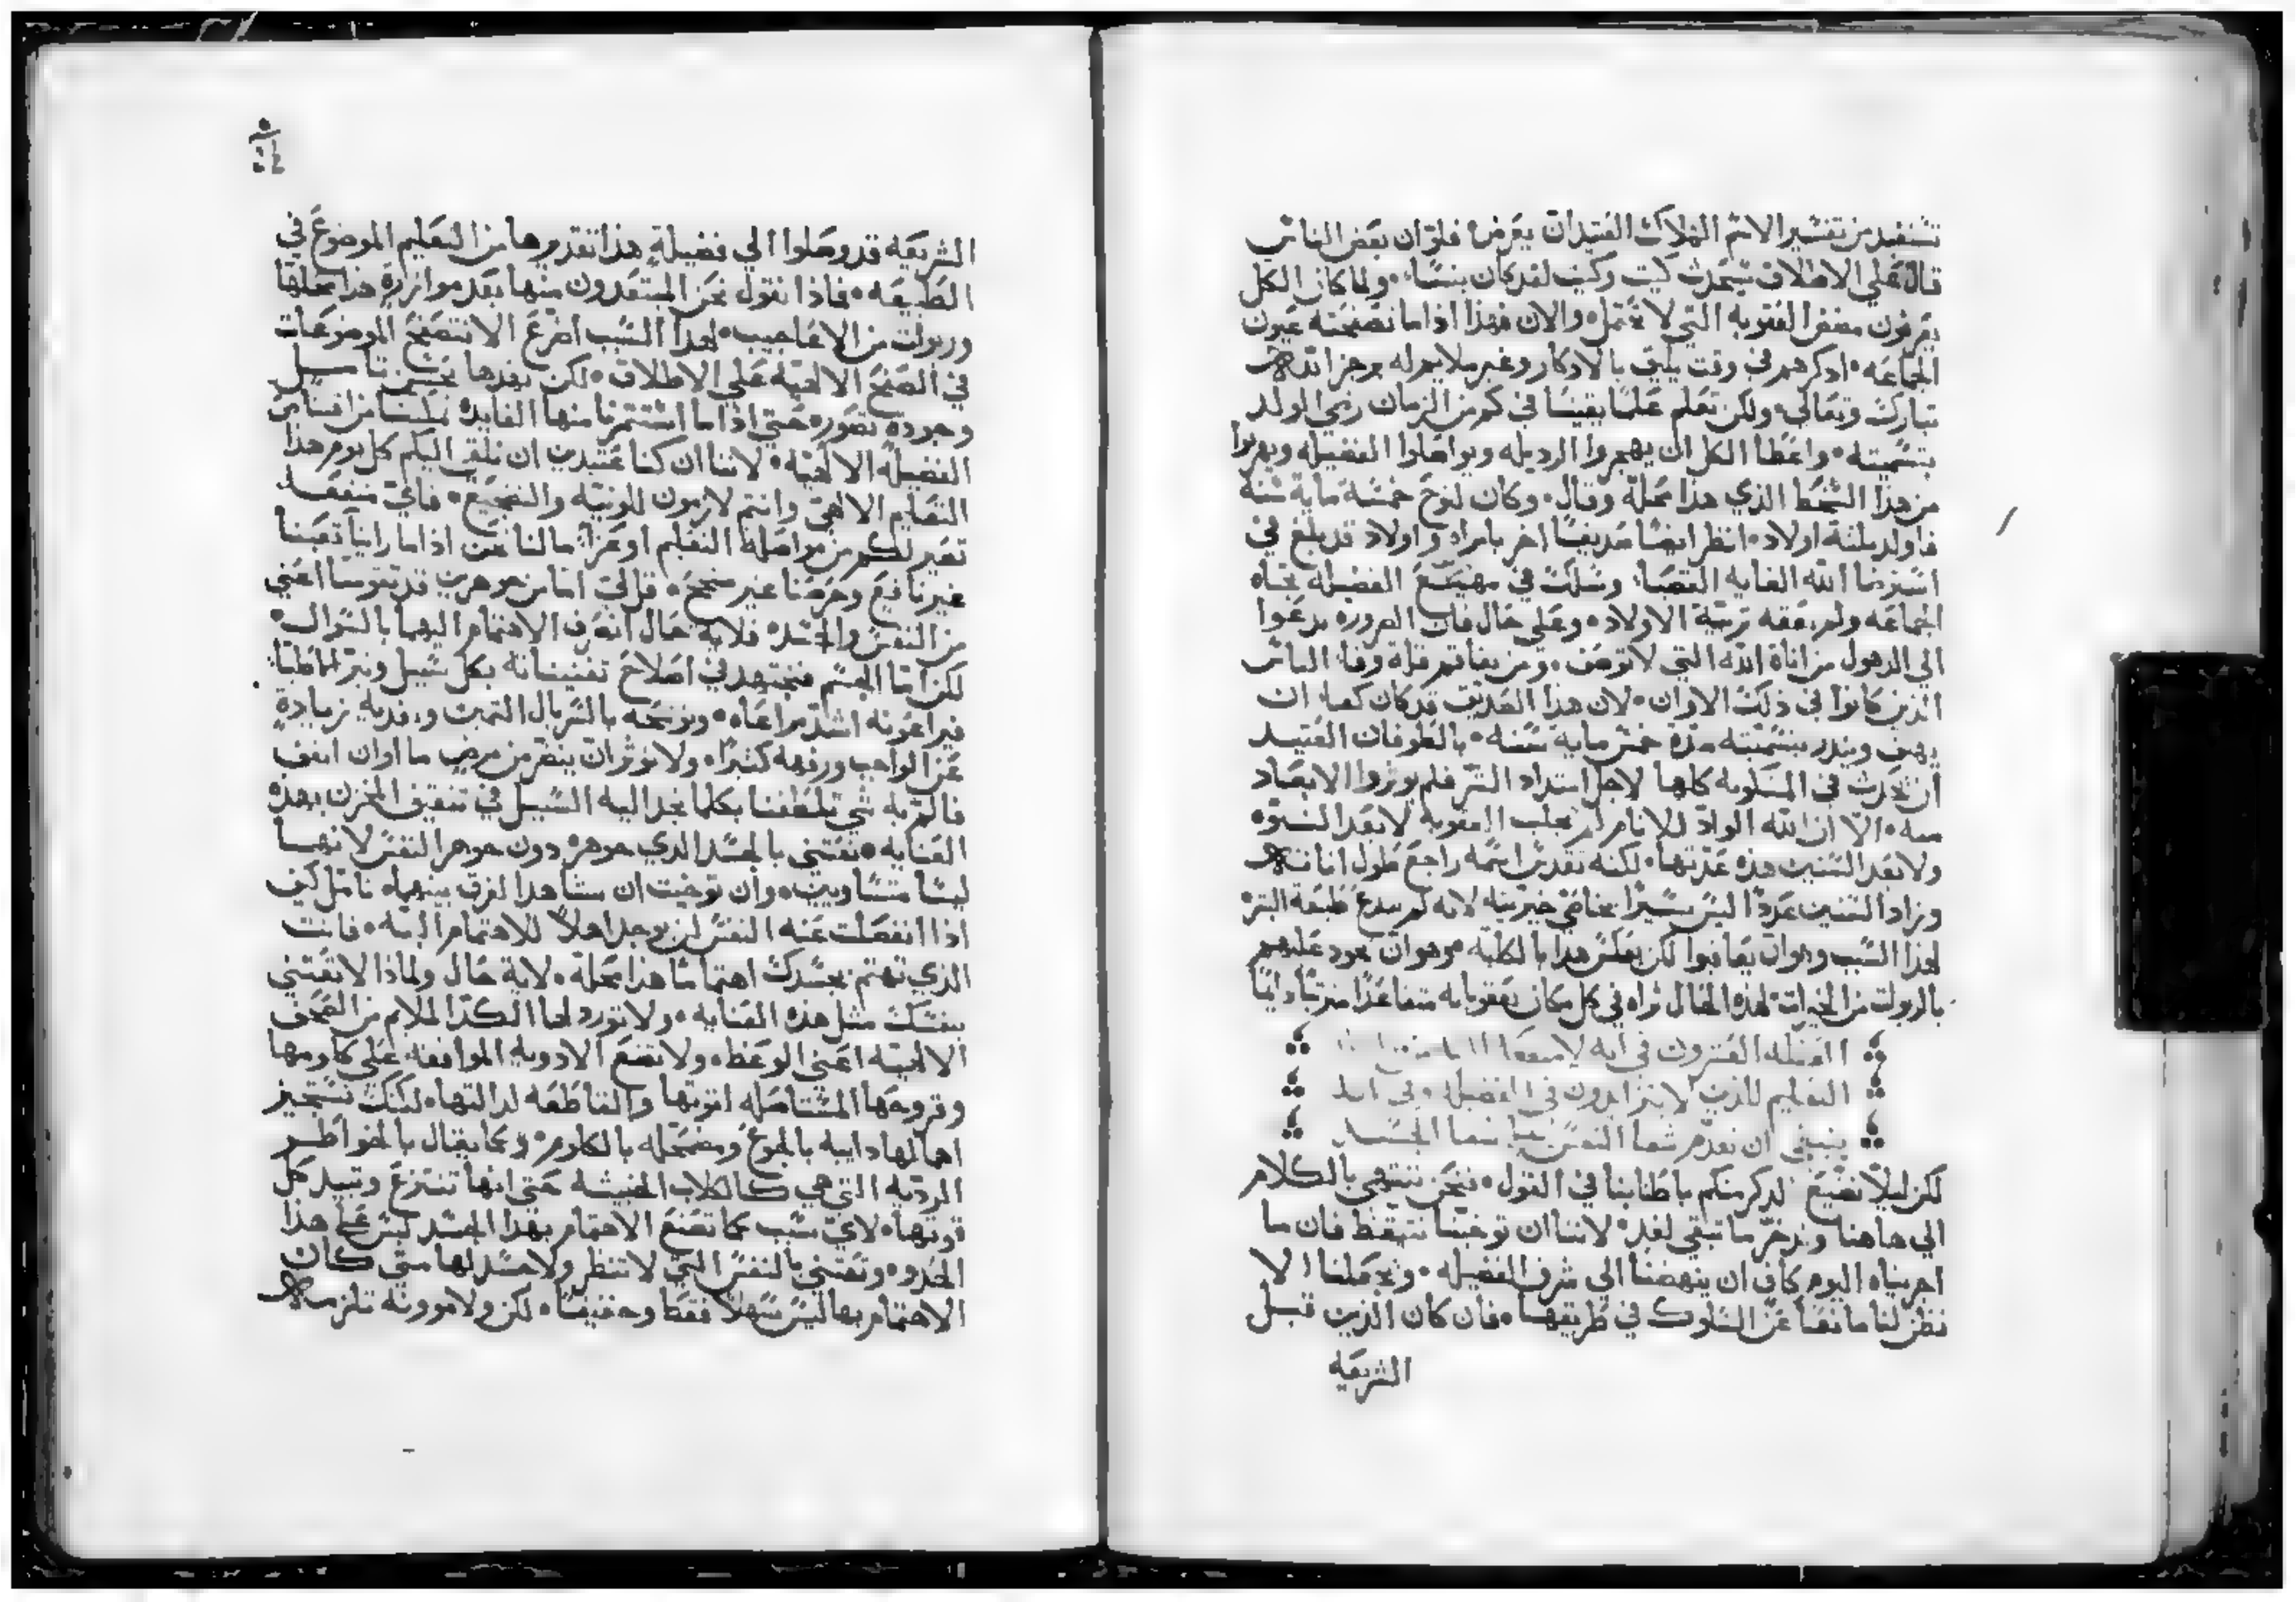 تستفيد من تفسير الاسم الهلاك العتيد ان يعرض فلو ان بعض الناس
قال علي الاطلاق سيحدث كيت وكيت لقد كان ينسا ولما كان الكل
يعرفون مضض العقوبه التي لا تحتمل والان فهذا اذا ما تصفحته عيون
الجماعه اذكرهم في وقت يليق بالادكار وغير ملايم له برجز الله
تبارك وتعالي ولكن تعلم علما يقينا في كم من الزمان زهي الولد
بتسميته واعطا الكل ان يهجروا الرديله ويواصلوا الفضيله ويهربوا
من هذا السخط الذي هذا محله وقال وكان لنوح خمسة ماية سنة
فاولد ثلثة اولاد انظر ايضا صديقا اخر بامراه واولاد قد بلغ في
الله الغايه القصبا وسلك في مهيع الفضيله تجاه
الجماعه ولم يعقه تربية الاولاد وعلي حال فان الضروره تدعوا
الي الذهول من اناة الله التي لا توصف ومن بقاتهم قلة وفا الناس
الذين كانوا في ذلك الاوان لان هذا الصديق قد كان كعبه ان
يهتف وينذر بتسميته مدة خمس ماية سنه بالطوفان العتيد
ان يحدث في المسكونه كلها لاجل امتداد الشر فلم يوثروا الابعاد
منه الا ان الله الواد للانام لم يجلب العقوبه لا بعد النبوه
ولا بعد السنين هذه عدتها لكنه تقدس اسمه راجع طول اناته
وزاد السنين عددا ليس يسيرا لانه لم يبدع طبيعة البشر
لهذا السبب وهو ان يعاقبوا لكن بعكس هذا بالكليه وهو ان يجود عليهم
بالربوات من الخيرات لهذه الحال تراه في كل مكان
العظه العشرون في انه لا
التعليم للذين لا يتزايدون في الفضيله وفي انه
ينبغي ان نقدم شفا النفس علي شفا الجسد
لكن ليلا نضيع الذكر منكم باطنابنا في القول فنحن ننتهي بالكلام
الي هاهنا وندخر ما تبقي لغد لاننا ان توخينا نتيقظ فان ما
اجريناه اليوم كاف ان ينهضنا الي شرف الفضيله ويجعلنا ان لا
نظن لنا مانعا عن السلوك في طريقها فان كان الذين قبل
الشريعه
الشريعه قد وصلوا الي فضيلة هذا تقديرها من التعليم الموضوع في
الطبيعه فماذا نقول نحن المستعدون منها بعد موازرة هذا محلها
وربوات من الاعاجيب لهذا السبب اضرع الا نتصفح الموضوعات
في الصحف الالهيه علي الاطلاق لكن بعدها بحسن تامل
وجودة تصور حتي اذا ما استثمرنا منها الفايده تمكننا من اقتناي
الفضيلة الالهيه لاننا ان كنا عتيدين ان نلقي اليكم كل يوم هذا
التعليم الالهي وانتم لازمون للونيه والتضجيع فاي منفعه
تصير لكم من مواصلة التعليم او عزا ما لنا نحن اذا ما راينا تعبنا
غير نافع وحرصنا غير منجح قل لي اما من جوهرين قد تقومنا اعني
من النفس والجسد فلاية حال انصرف الاهتمام اليهما بالسوال
لكن اما الجسم فنجتهد في اصلاح تفنيناته بكل سبيل ونبر للاطبا
فيراعونه اشد مراعاه ونوشحه بالسربال الثمين ونغديه بزيادة
عن الواجب ونرفهه كثيرا ولا نوثر ان ينظر من مرض ما اوان
فالم به شي تلطفنا بكلما نجد اليه السبيل في تنقيف المحزن بهذه
العنايه نعتني بالجسد الذي جوهره دون جوهر النفس لانهما
ليسا متساويين وان توخيت ان تشاهد الفرق بينهما تامل كيف
اذا انفصلت عنه النفس لن يوجد اهلا للاهتمام البته فانت
الذي تهتم بجسدك اهتماما هذا محلة لاية حال ولماذا لا تعتني
بنفسك مثل هذه العنايه ولا تورد لها الكد الملايم من الصحف
الالهيه اعني الوعظ ولا تضع الادويه الموافقه علي كلومها
وقروحها المستاصله لقوتها والقاطعه لدالتها لكنك تستجيز
اهمالها دايبه بالجوع ومضمحله بالكلوم وكما يقال بالخواطر
الرديه التي هي كالكلاب الخبيثه حتي انها تنتزع وتبيد كل
قوتها لاي سبب كما تصنع الاهتمام بهذا الجسد ليس علي هذا
الحذو وتعتني بالنفس التي لا تنظر ولا جسد لها متي كان
الاهتمام بها ليس سهلا فقط وخفيفا لكن ولا موونه تلزمك